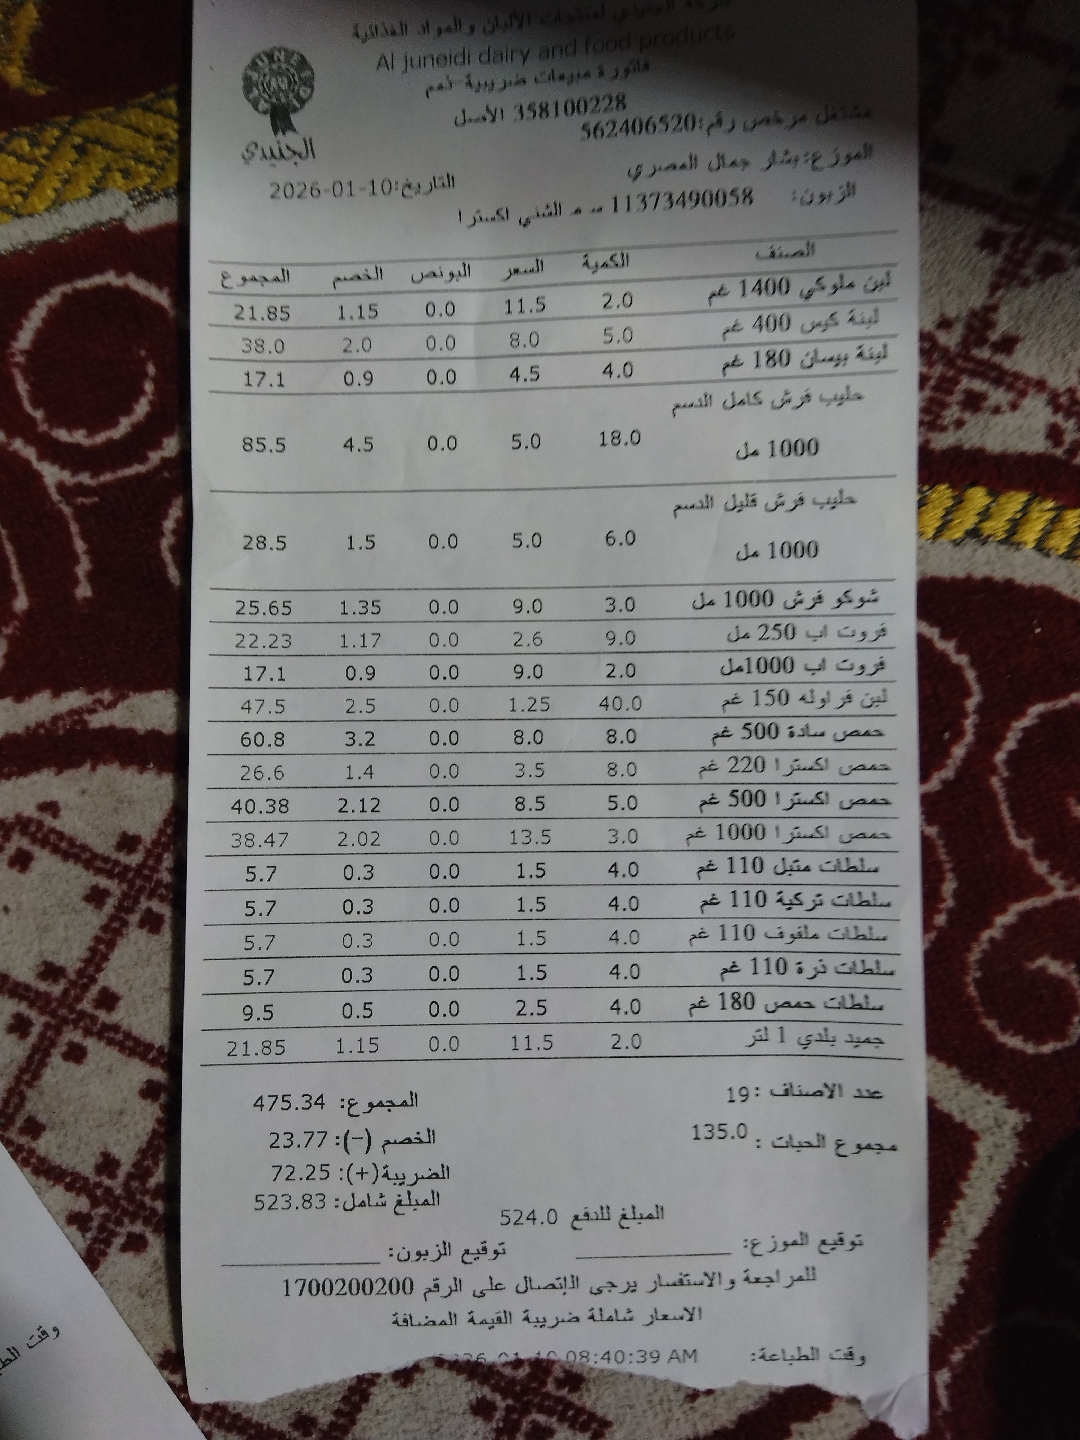 شركة الجنيدي لمنتجات الألبان والمواد الغذائية
Al juneidi dairy and food products
فاتورة مبيعات ضريبية-ذمم
358100228 الأصل
مشتغل مرخص رقم:562406520
الجنيدي
الموزع:بشار جمال المصري
التاريخ:2026-01-10
الزبون: 11373490058 س م الشني اكسترا
الصنف الكمية السعر البونص الخصم المجموع
لبن ملوكي 1400 غم 2.0 11.5 0.0 1.15 21.85
لبنة كيس 400 غم 5.0 8.0 0.0 2.0 38.0
لبنة بيسان 180 غم 4.0 4.5 0.0 0.9 17.1
حليب فرش كامل الدسم
1000 مل 18.0 5.0 0.0 4.5 85.5
حليب فرش قليل الدسم
1000 مل 6.0 5.0 0.0 1.5 28.5
شوكو فرش 1000 مل 3.0 9.0 0.0 1.35 25.65
فروت اب 250 مل 9.0 2.6 0.0 1.17 22.23
فروت اب 1000مل 2.0 9.0 0.0 0.9 17.1
لبن فراوله 150 غم 40.0 1.25 0.0 2.5 47.5
حمص سادة 500 غم 8.0 8.0 0.0 3.2 60.8
حمص اكسترا 220 غم 8.0 3.5 0.0 1.4 26.6
حمص اكسترا 500 غم 5.0 8.5 0.0 2.12 40.38
حمص اكسترا 1000 غم 3.0 13.5 0.0 2.02 38.47
سلطات متبل 110 غم 4.0 1.5 0.0 0.3 5.7
سلطات تركية 110 غم 4.0 1.5 0.0 0.3 5.7
سلطات ملفوف 110 غم 4.0 1.5 0.0 0.3 5.7
سلطات ذرة 110 غم 4.0 1.5 0.0 0.3 5.7
سلطات حمص 180 غم 4.0 2.5 0.0 0.5 9.5
جميد بلدي 1 لتر 2.0 11.5 0.0 1.15 21.85
عدد الاصناف :19
المجموع: 475.34
مجموع الحبات : 135.0
الخصم (-): 23.77
الضريبة(+): 72.25
المبلغ شامل: 523.83
المبلغ للدفع 524.0
توقيع الموزع: ____________ توقيع الزبون: ____________
للمراجعة والاستفسار يرجى الإتصال على الرقم 1700200200
الاسعار شاملة ضريبة القيمة المضافة
وقت الطباعة: 08:40:39 AM
وقت